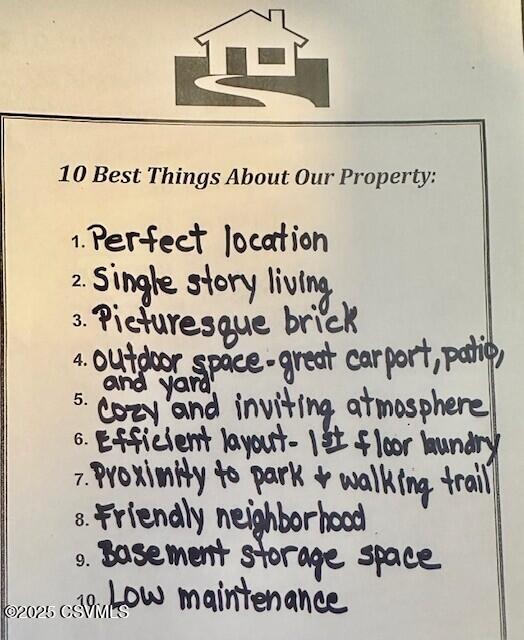 10 Best Things About Our Property:
1. Perfect location
2. Single story living
3. Picturesque brick
4. outdoor space - great carport, patio,
and yard
5. Cozy and inviting atmosphere
6. Efficient layout - 1st floor laundry
7. Proximity to park + walking trail
8. Friendly neighborhood
9. Basement storage space
10. Low maintenance
©2025 CSVMLS